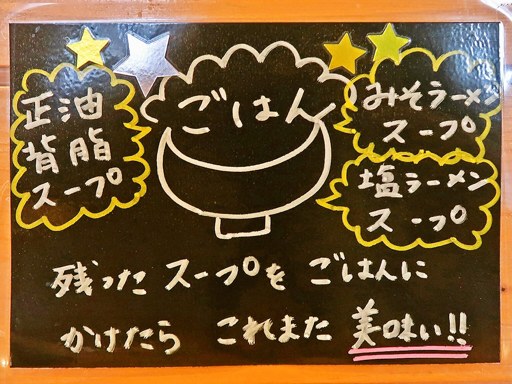 正油
背脂
スープ
ごはん
みそラーメン
スープ
塩ラーメン
スープ
残ったスープを ごはんに
かけたら これまた 美味い!!